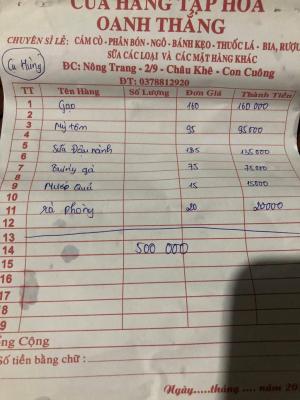 CỬA HÀNG TẠP HÓA
OANH THẮNG
CHUYÊN SỈ LẺ: CÁM CÒ - PHÂN BÓN - NGÔ - BÁNH KẸO - THUỐC LÁ - BIA, RƯỢU
SỮA CÁC LOẠI VÀ CÁC MẶT HÀNG KHÁC
ĐC: Nông Trang - 2/9 - Châu Khê - Con Cuông
ĐT: 0378812920
TT Tên Hàng Số Lượng Đơn Giá Thành Tiền
1 Gạo 160 160 000
2
3 Mỳ tôm 95 95000
4
5 Sữa Đậu nành 135 135000
6
7 Trứng gà 75 75000
8
9 15 15000
10
11 xà phòng 20 20000
12
13
14 500 000
15
16
17
18
9
ổng Cộng
Số tiền bằng chữ:
Ngày.....tháng.....năm 20